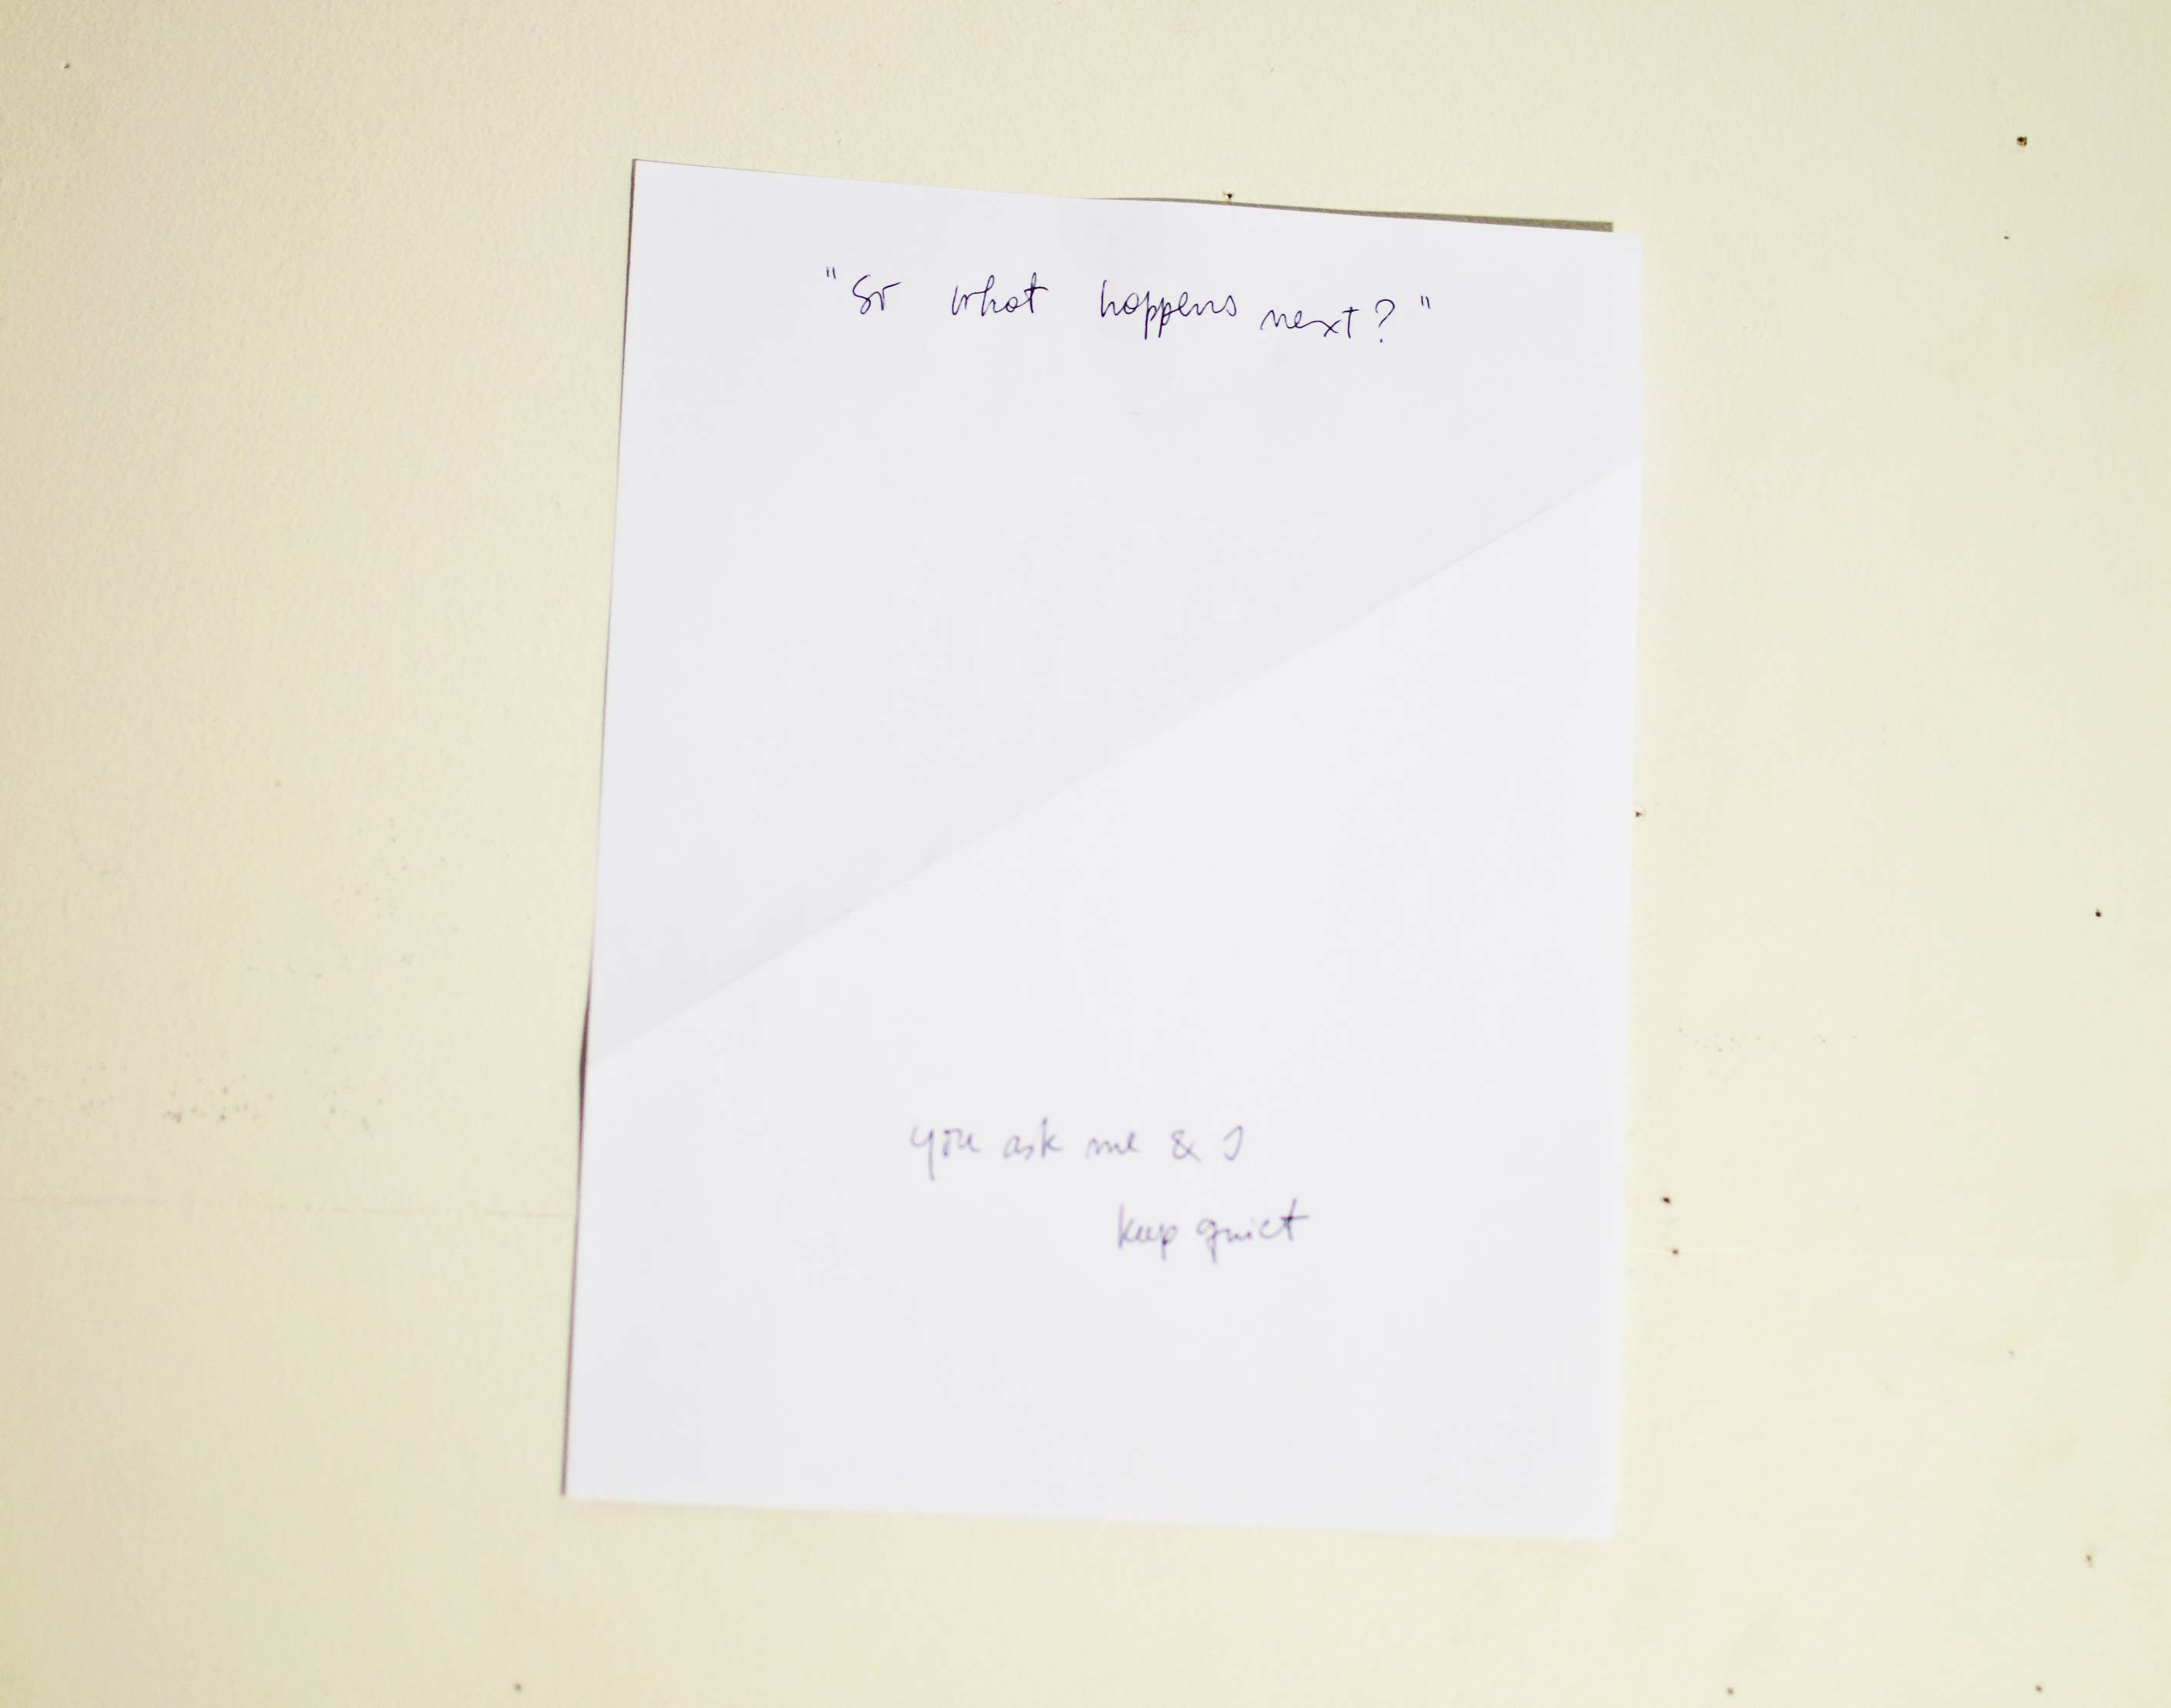 "So what happens next?"
you ask me & I
keep quiet